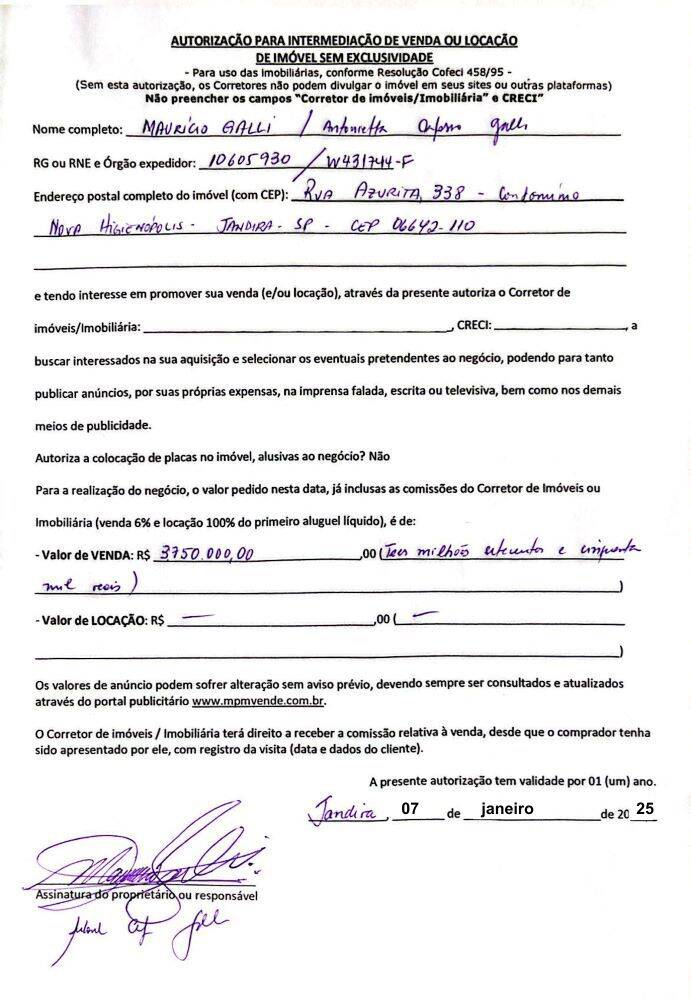 AUTORIZAÇÃO PARA INTERMEDIAÇÃO DE VENDA OU LOCAÇÃO
DE IMÓVEL SEM EXCLUSIVIDADE
- Para uso das Imobiliárias, conforme Resolução Cofeci 458/95 -
(Sem esta autorização, os Corretores não podem divulgar o imóvel em seus sites ou outras plataformas)
Não preencher os campos "Corretor de imóveis/Imobiliária" e CRECI"
Nome completo: MAURÍCIO GALLI / Antonietta Galli
RG ou RNE e Órgão expedidor: 10605930 / W431744-F
Endereço postal completo do imóvel (com CEP): RUA AZURITA, 338 - Condomínio
NOVA HIGIENÓPOLIS - JANDIRA - SP - CEP 06642-110
e tendo interesse em promover sua venda (e/ou locação), através da presente autoriza o Corretor de
imóveis/Imobiliária: , CRECI: , a
buscar interessados na sua aquisição e selecionar os eventuais pretendentes ao negócio, podendo para tanto
publicar anúncios, por suas próprias expensas, na imprensa falada, escrita ou televisiva, bem como nos demais
meios de publicidade.
Autoriza a colocação de placas no imóvel, alusivas ao negócio? Não
Para a realização do negócio, o valor pedido nesta data, já inclusas as comissões do Corretor de Imóveis ou
Imobiliária (venda 6% e locação 100% do primeiro aluguel líquido), é de:
- Valor de VENDA: R$ 3750.000,00 ,00 (Tres milhões setecentos e cinquenta
mil reais ) )
- Valor de LOCAÇÃO: R$ — ,00 ( —
)
Os valores de anúncio podem sofrer alteração sem aviso prévio, devendo sempre ser consultados e atualizados
através do portal publicitário www.mpmvende.com.br.
O Corretor de imóveis / Imobiliária terá direito a receber a comissão relativa à venda, desde que o comprador tenha
sido apresentado por ele, com registro da visita (data e dados do cliente).
A presente autorização tem validade por 01 (um) ano.
Jandira, 07 de janeiro de 2025
Assinatura do proprietário ou responsável